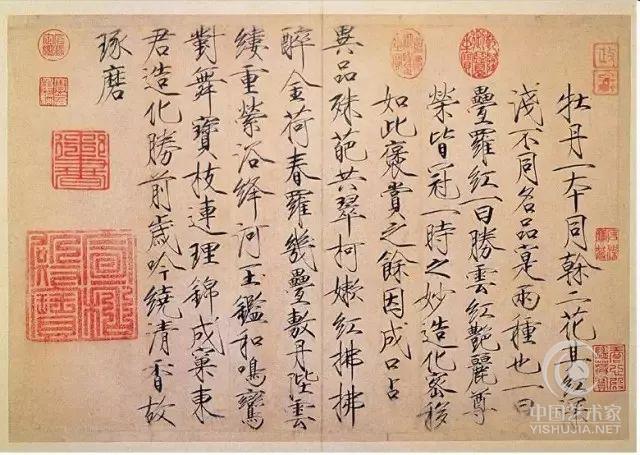 牡丹一本同幹二花其紅深
淺不同名品寔兩種也一曰
疊羅紅一曰勝雲紅艷麗尊
榮皆冠一時之妙造化密移
如此褒賞之餘因成口占
異品殊葩共翠柯嫩紅拂拂
醉金荷春羅幾疊敷丹陛雲
縷重縈浴絳河玉鑑和鳴鸞
對舞寶枝連理錦成窠東
君造化勝前歲吟繞清香故
琢磨
中国艺术家
YISHUJIA.NET